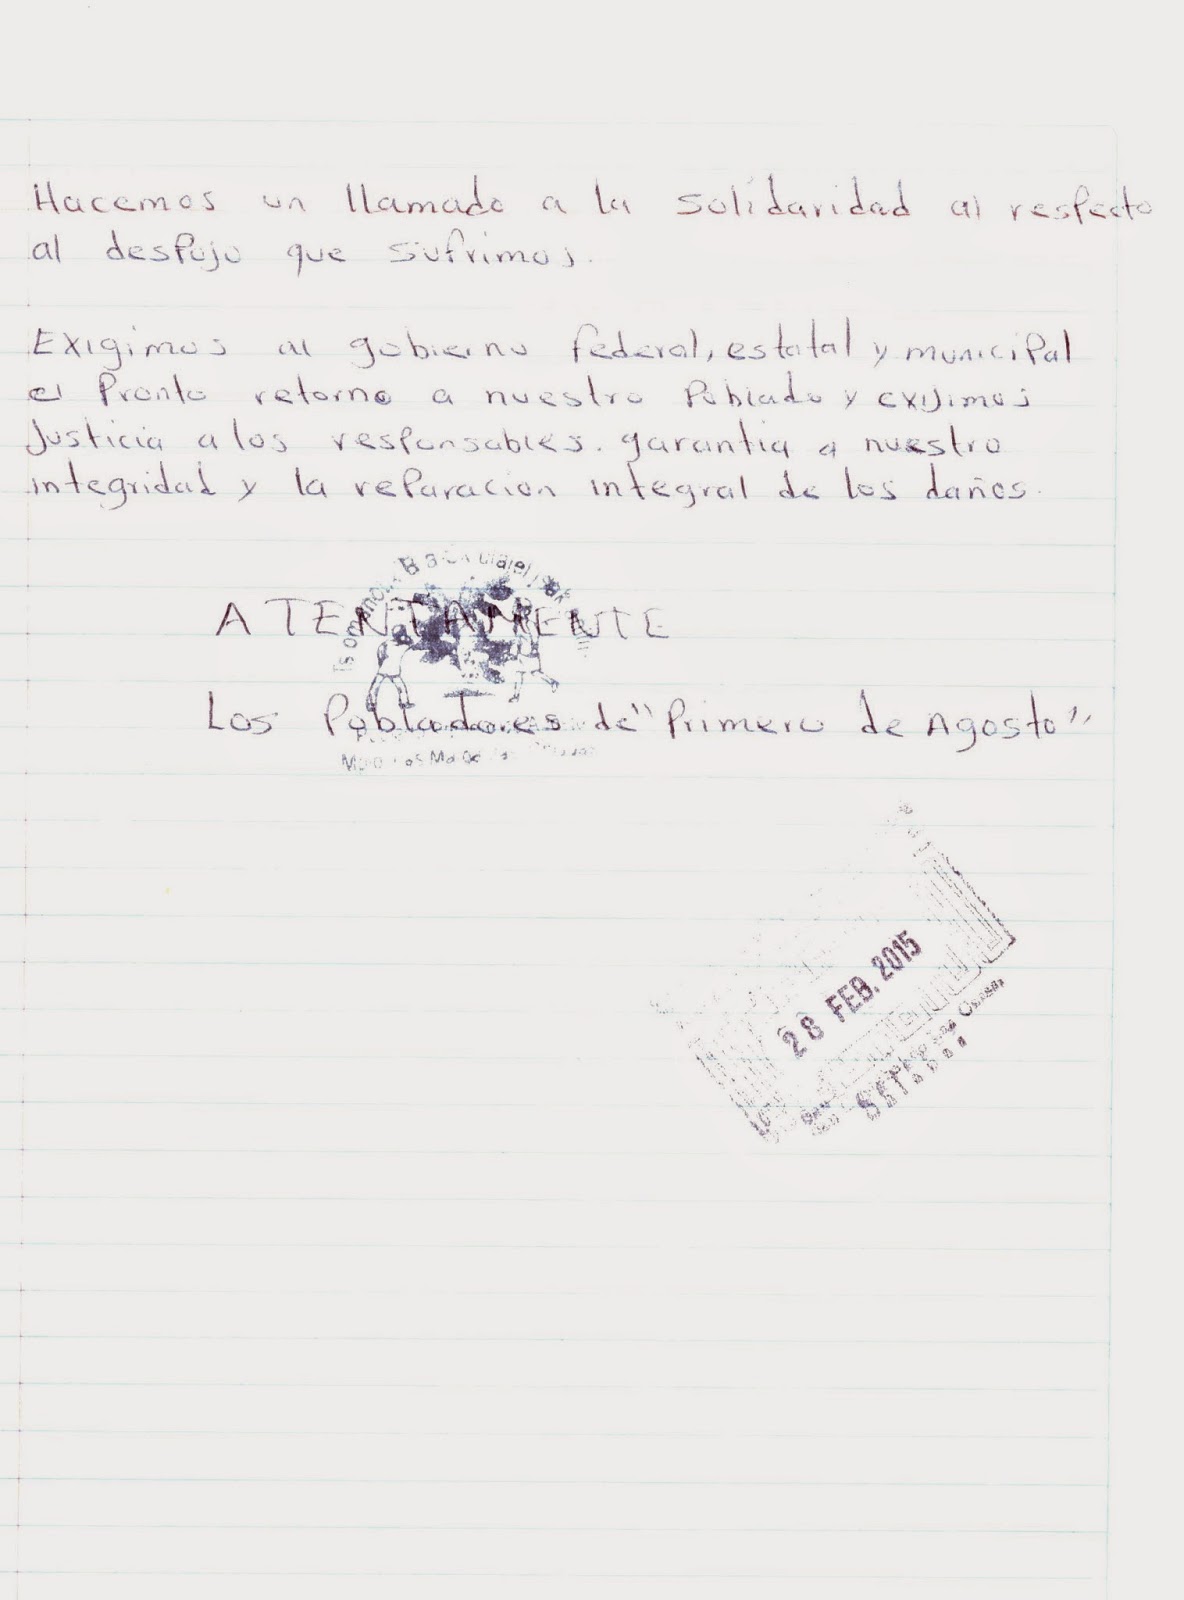 Hacemos un llamado a la solidaridad al respecto
al despojo que sufrimos.
Exigimos al gobierno federal, estatal y municipal
el Pronto retorno a nuestro Poblado y exijimos
Justicia a los responsables. garantia a nuestro
integridad y la reparacion integral de los daños.
ATENTAMENTE
Los Pobladores de "Primero de Agosto"
28 FEB. 2015